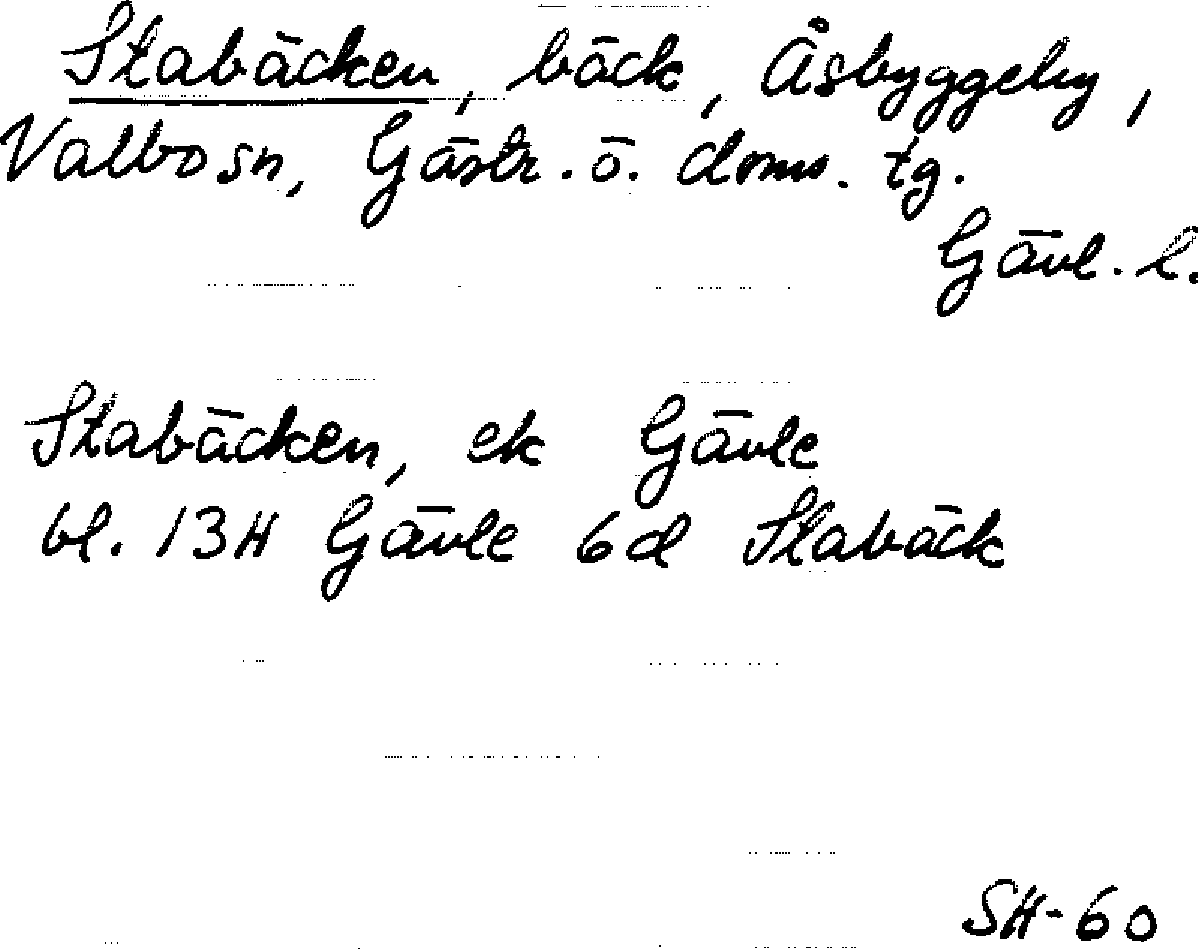 Stabäcken, bäck, Åsbyggeby,
Valbo sn, Gästr. ö. doms. tg.
Gävl. l.
Stabäcken, ek Gävle
bl. 13H Gävle 6d Stabäck
SH-60